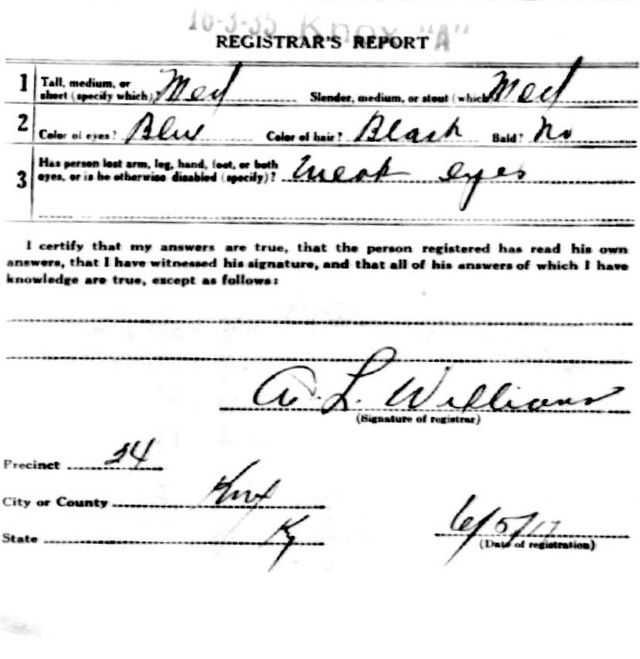 16-3-35 Knox "A"
REGISTRAR'S REPORT
1 Tall, medium, or short (specify which) Med Slender, medium, or stout (which) Med
2 Color of eyes? Blue Color of hair? Black Bald? No
3 Has person lost arm, leg, hand, foot, or both eyes, or is he otherwise disabled (specify)? Weak eyes
I certify that my answers are true, that the person registered has read his own
answers, that I have witnessed his signature, and that all of his answers of which I have
knowledge are true, except as follows:
A. L. Williams
(Signature of registrar)
Precinct 24
City or County Knox
State Ky 6/5/17
(Date of registration)